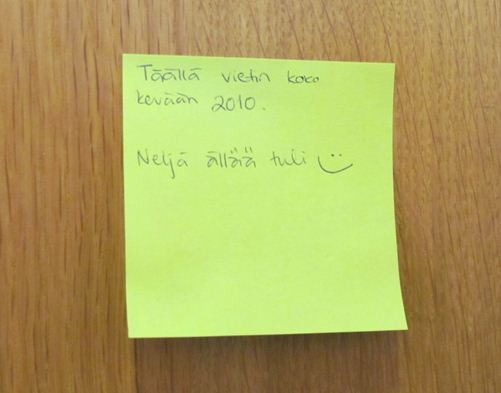 Täällä vietin koko
kevään 2010.
Neljä ällää tuli :)